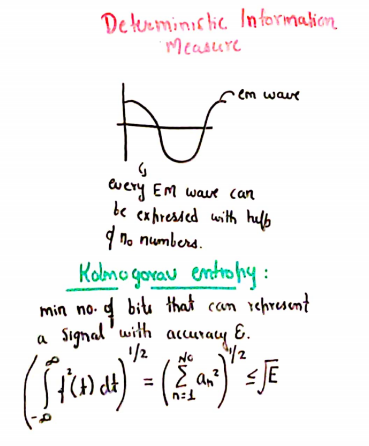 Deterministic Information
Measure
em wave
every EM wave can
be expressed with help
of no numbers.
Kolmogorav entropy :
min no. of bits that can represent
a signal with accuracy ε.
(∫_{-∞}^{∞} f²(t) dt)^{1/2} = (∑_{n=1}^{No} aₙ²)^{1/2} ≤ √E